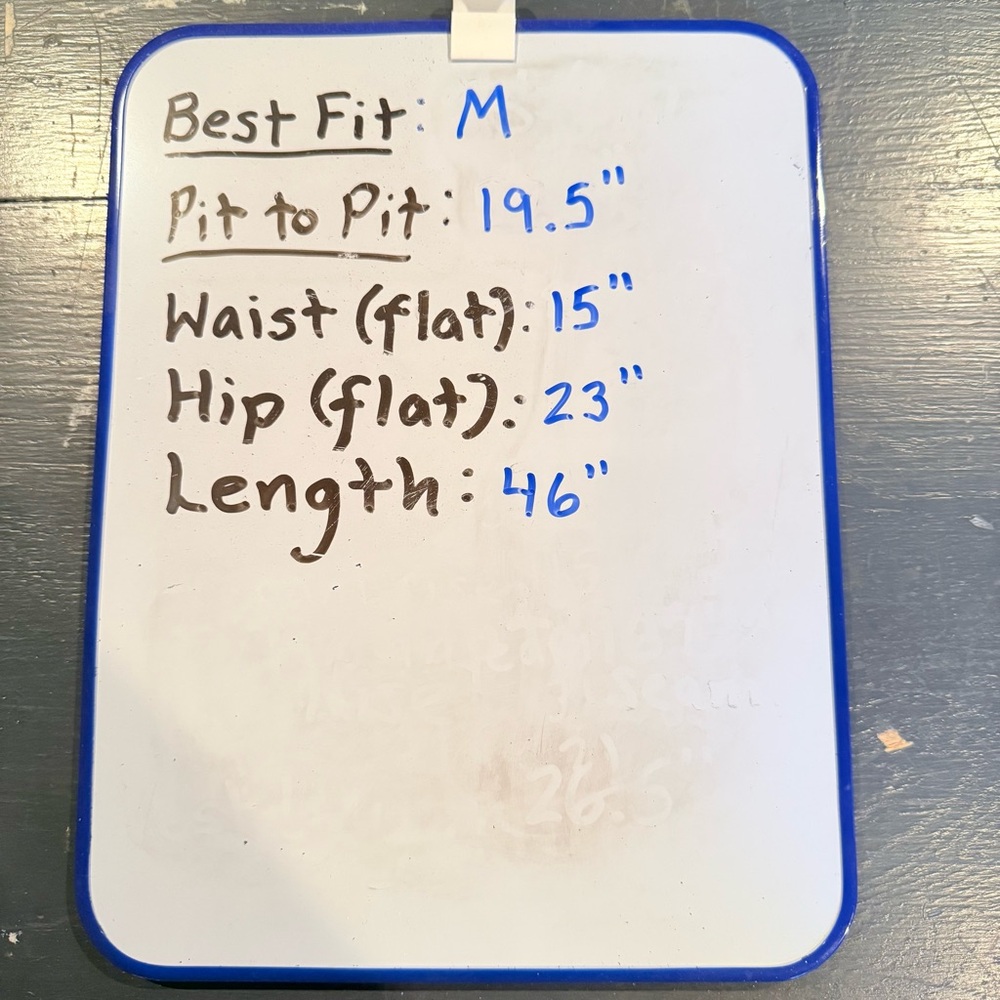 Best Fit: M
Pit to Pit: 19.5"
Waist (flat): 15"
Hip (flat): 23"
Length: 46"